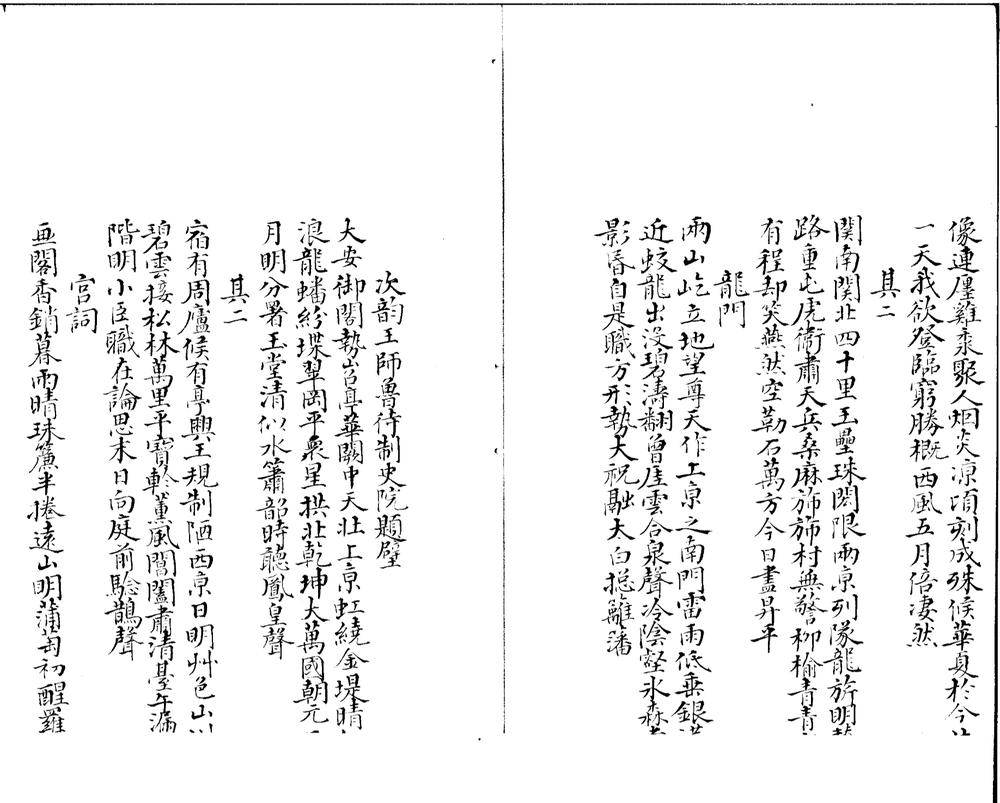 像連廛雞汞聚人烟炎凉頃刻成殊候華夏於今
一天我欲登臨窮勝概西風五月倍凄然
其二
関南関北四十里玉壘珠閎限兩京列隊龍旂明
路重屯虎衛肅天兵桑麻斾斾村無警柳榆青青
有程却笑燕然空勒石萬方今日盡昇平
龍門
兩山屹立地望尊天作上京之南門雷雨低垂銀
近蛟龍出没碧濤翻曾崖雲合泉聲冷陰壑氷森
影昏自是職方形勢大祝融太白揔籬藩
次韵王師魯待制史院題壁
大安御閣勢岧亭華闕中天壮上京虹繞金堤晴
浪龍蟠紛堞翠岡平衆星拱北乾坤大萬國朝元
月明分署玉堂清似水簫韶時聽鳳皇聲
其二
宿有周廬候有亭興王規制陋西京日明艸色山
碧雲接松林萬里平寳軫薫風閶闔肅清臺午漏
階明小臣職在論思末日向庭前騐鵲聲
宫詞
画閣香銷暮雨晴珠簾半捲遠山明蒲萄初醒羅